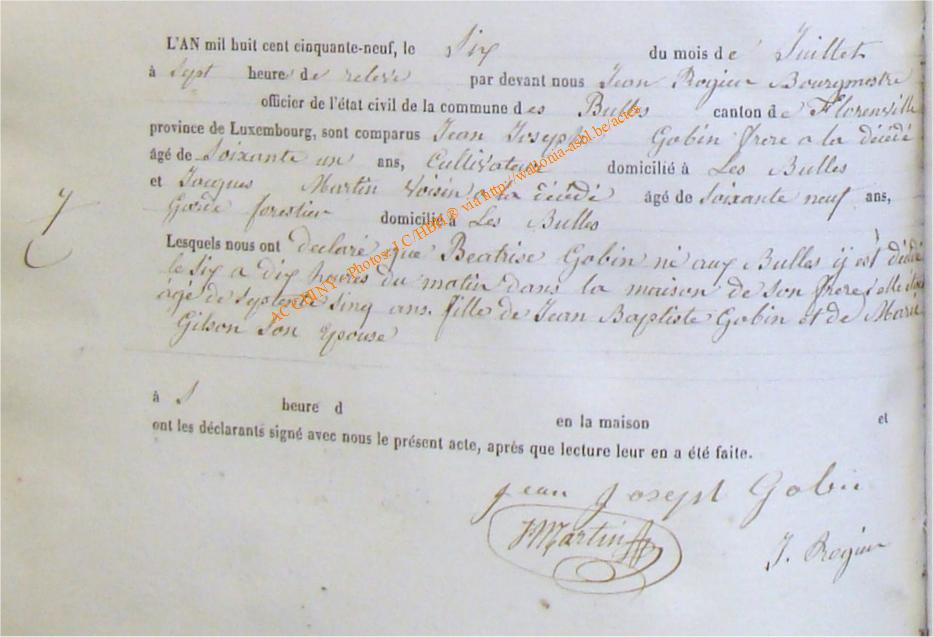 L'AN mil huit cent cinquante-neuf, le Six du mois de Juillet
à Sept heure de releve par devant nous Jean Rogier Bourgmestre
officier de l'état civil de la commune des Bulles canton de Florenville
province de Luxembourg, sont comparus Jean Joseph Gobin frere a la décédé
âgé de Soixante un ans, Cultivateur domicilié à Les Bulles
et Jacques Martin Voisin a la décédé âgé de Soixante neuf ans,
7
Garde forestier domicilié à Les Bulles
Lesquels nous ont declaré que Beatrise Gobin né aux Bulles ij est décédé
le Six a dix heures du matin dans la maison de son frere elle
âgé de Septente Sinq ans. fille de Jean Baptiste Gobin et de Marie
Gilson Son Epouse
à heure d en la maison et
ont les déclarants signé avec nous le présent acte, après que lecture leur en a été faite.
jean joseph Gobin
JMartin
J. Rogier
AC CHINY - Photos: J C/HBH® via http://wallonia-asbl.be/actes